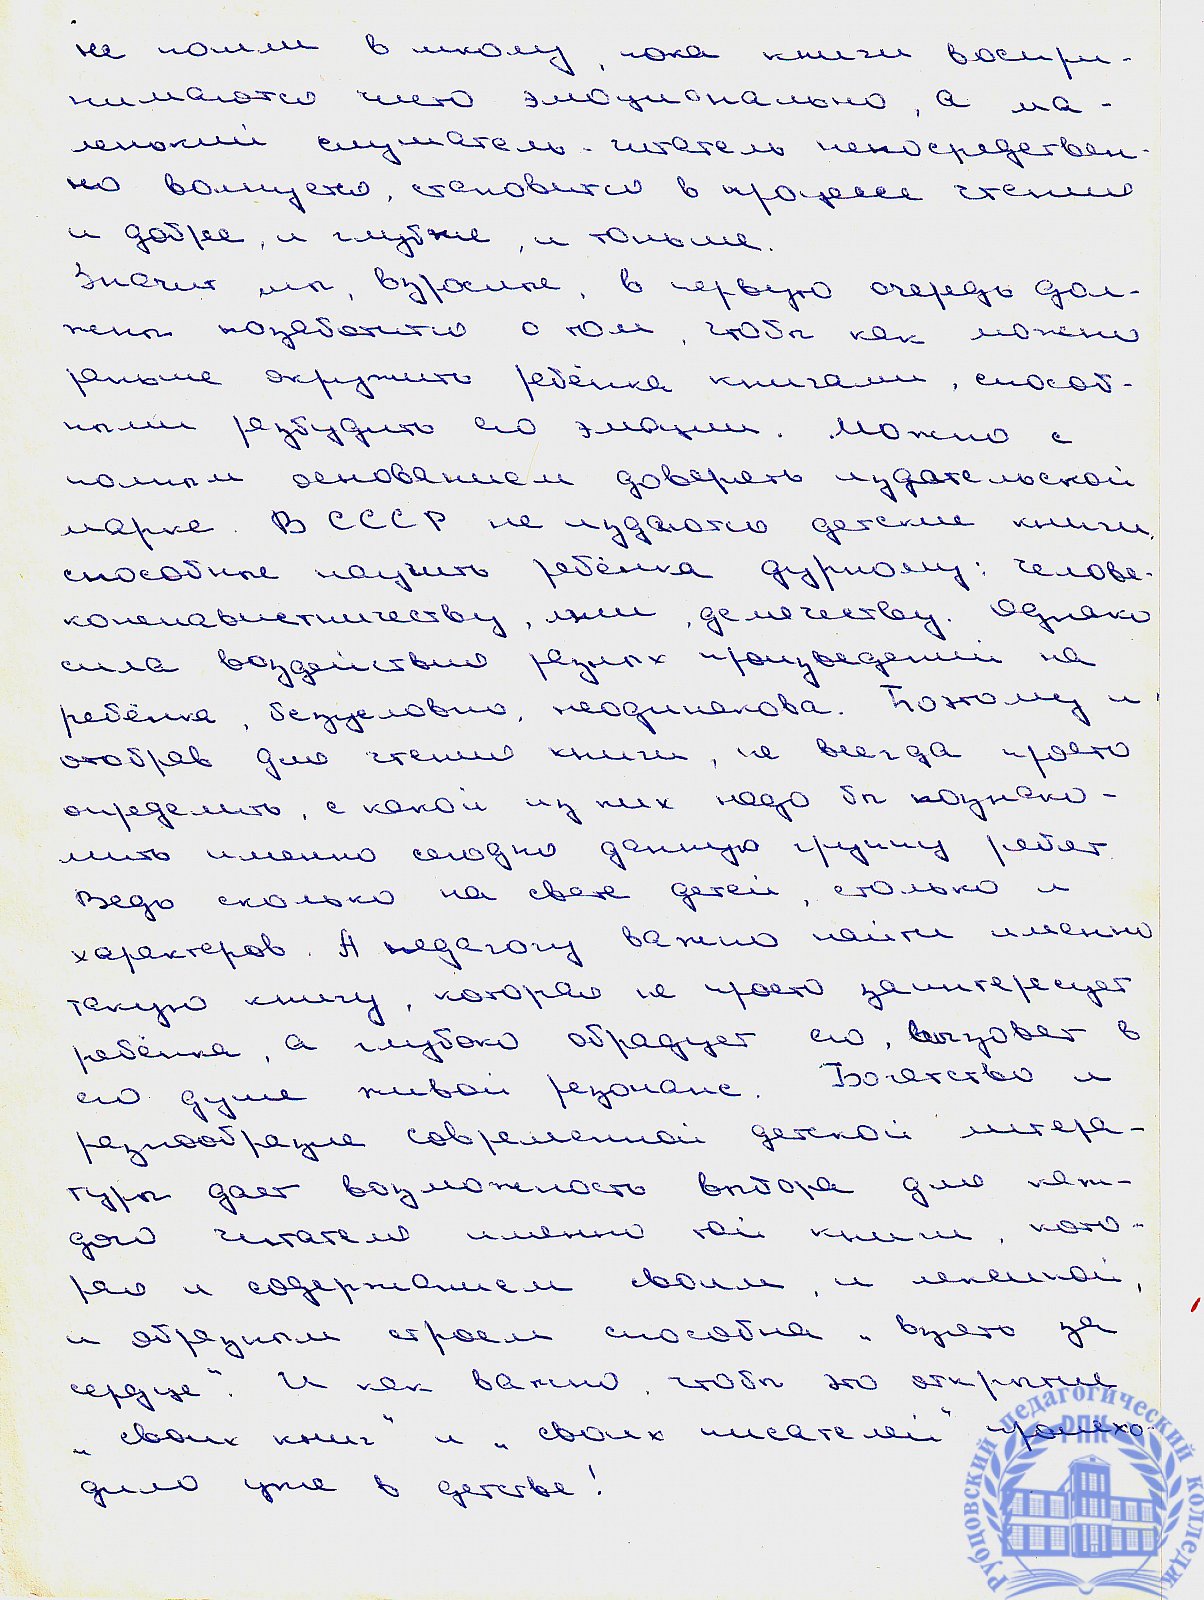 не пошли в школу, пока книги воспри-
нимаются чисто эмоционально, а ма-
ленький слушатель-читатель непосредствен-
но волнуется, становится в процессе чтения
и добрее, и глубже, и тоньше.
Значит мы, взрослые, в первую очередь дол-
жны позаботиться о том, чтобы как можно
раньше окружить ребёнка книгами, способ-
ными разбудить его эмоции. Можно с
полным основанием доверять издательской
марке. В СССР не издаются детские книги,
способные научить ребёнка дурному: челове-
коненавистничеству, лжи, делячеству. Однако
сила воздействия разных произведений на
ребёнка, безусловно, неодинакова. Потому и
отобрав для чтения книги, не всегда просто
определить, с какой из них надо бы познако-
мить именно сегодня данную группу ребят.
Ведь сколько на свете детей, столько и
характеров. А педагогу важно найти именно
такую книгу, которая не просто заинтересует
ребёнка, а глубоко обрадует его, вызовет в
его душе живой резонанс. Богатство и
разнообразие современной детской литера-
туры дает возможность выбора для каж-
дого читателя именно той книги, кото-
рая и содержанием своим, и лексикой,
и образным строем способна „взять за
сердце“. И как важно, чтобы это открытие
„своих книг“ и „своих писателей“ происхо-
дило уже в детстве!
Рубцовский педагогический колледж
РПК